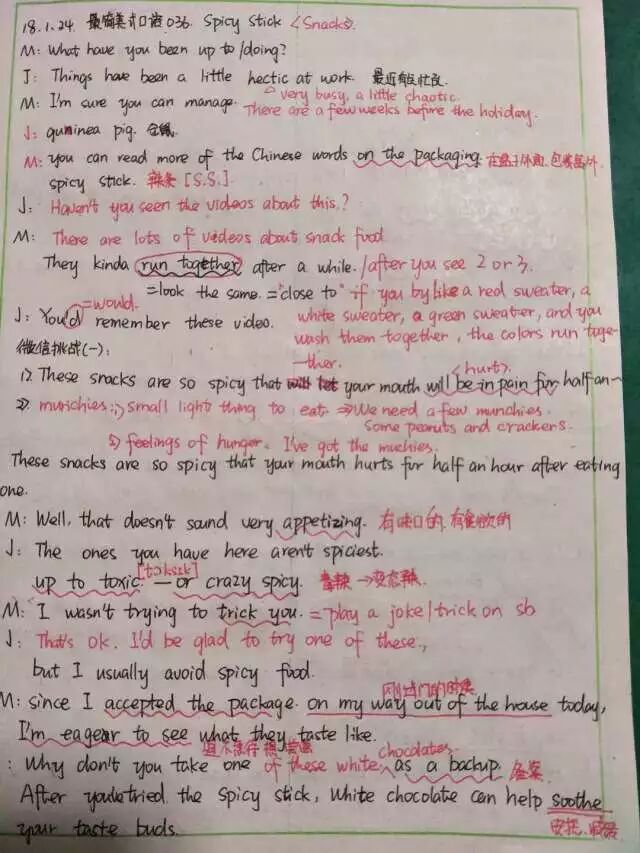 18.1.24. 最常美式口语036. Spicy Stick <Snacks>.
M: What have you been up to /doing?
J: Things have been a little hectic at work. 最近有些忙
very busy, a little chaotic.
M: I'm sure you can manage. There are a few weeks before the holiday.
J: guninea pig.
M: you can read more of the Chinese words on the packaging. 包装
spicy stick. 辣条 [S.S.]
J: Haven't you seen the videos about this.?
M: There are lots of videos about snack food
They kinda run together after a while. /after you see 2 or 3.
=look the same. ="close to" if you by like a red sweater, a
=would.
J: You'd remember these video. white sweater, a green sweater, and you
wash them together, the colors run toge-
-ther.
微信挑战(一):
<hurt>.
1). These snacks are so spicy that your mouth will be in pain for half an
2). munchies: 1) small light thing to eat. ⇒We need a few munchies.
Some peanuts and crackers.
2) feelings of hunger. I've got the muchies.
These snacks are so spicy that your mouth hurts for half an hour after eating
one.
M: Well, that doesn't sound very appetizing. 有味口的. 有食欲的
J: The ones you have here aren't spiciest.
up to toxic — or crazy spicy. 毒辣→变态辣.
M: I wasn't trying to trick you. =play a joke/trick on sb
J: That's ok. I'd be glad to try one of these.,
but I usually avoid spicy food.
刚出门的时候
M: since I accepted the package. on my way out of the house today,
I'm eagear to see what they taste like.
chocolates
: Why don't you take one of these white as a backup. 备案
After you'e tried the spicy stick, white chocolate can help soothe
your taste buds. 安抚.